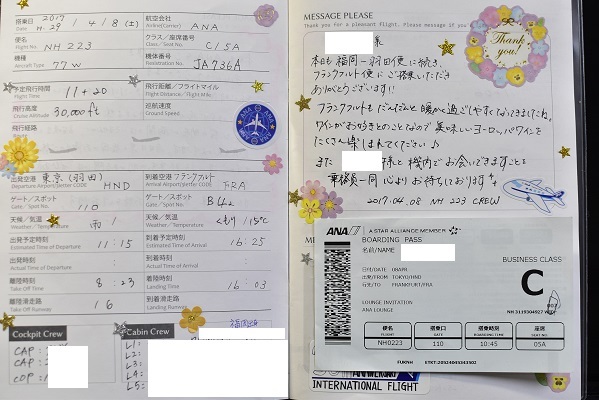 搭乗日 Date 2017 H.29 / 4 / 8 (土)
航空会社 Airline(Carrier) ANA
便名 Flight No. NH 223
クラス／座席番号 Class／Seat No. C / 5A
機種 Aircraft Type 77W
機体番号 Registration No. JA736A
予定飛行時間 Flight Time 11+20
飛行距離／フライトマイル Flight Distance／Flight Mile
飛行高度 30,000ft
巡航速度 Ground Speed
飛行経路
ANA
出発空港 東京(羽田) HND
到着空港 フランクフルト FRA
ゲート／スポット Gate／Spot 110
ゲート／スポット Gate／Spot
天候／気温 Weather／Temperature 雨 /
天候／気温 Weather／Temperature くもり / 15℃
出発予定時刻 Estimated Time of Departure 11 : 15
到着予定時刻 Estimated Time of Arrival 16 : 25
出発時刻 Actual Time of Departure :
到着時刻 Actual Time of Arrival :
離陸時刻 Take Off Time 8 : 23
着陸時刻 Landing Time 16 : 03
離陸滑走路 Take Off Runway 16
着陸滑走路 Landing Runway
Cockpit Crew
CAP :
CAP :
COP :
Cabin Crew
福岡出身
L1:
L2:
L3:
L4:
L5:
MESSAGE PLEASE
Thank you for a pleasant flight. Please
様
Thank you!
本日も福岡ー羽田便に続き、
フランクフルト便にご搭乗いただき
ありがとうございます!!
フランクフルトもだんだんと暖かく過ごしやすくなってきましたね。
ワインがお好きとのことなので美味しいヨーロッパワインを
たくさん楽しまれてください♪
また 様と機内でお会いできますことを
乗務員一同 心よりお待ちしております
2017.04.08 NH 223 CREW
MESSAGE
ANA A STAR ALLIANCE MEMBER
BOARDING PASS
名前/NAME
BUSINESS CLASS
C
日付/DATE 08APR
出発/FROM TOKYO/HND
行先/TO FRANKFURT/FRA
LOUNGE INVITATION
ANA LOUNGE
便名 FLIGHT NH0223
搭乗口 GATE 110
搭乗時刻 BOARDING TIME 10:45
座席 SEAT 05A
FUKNH
INTERNATIONAL FLIGHT